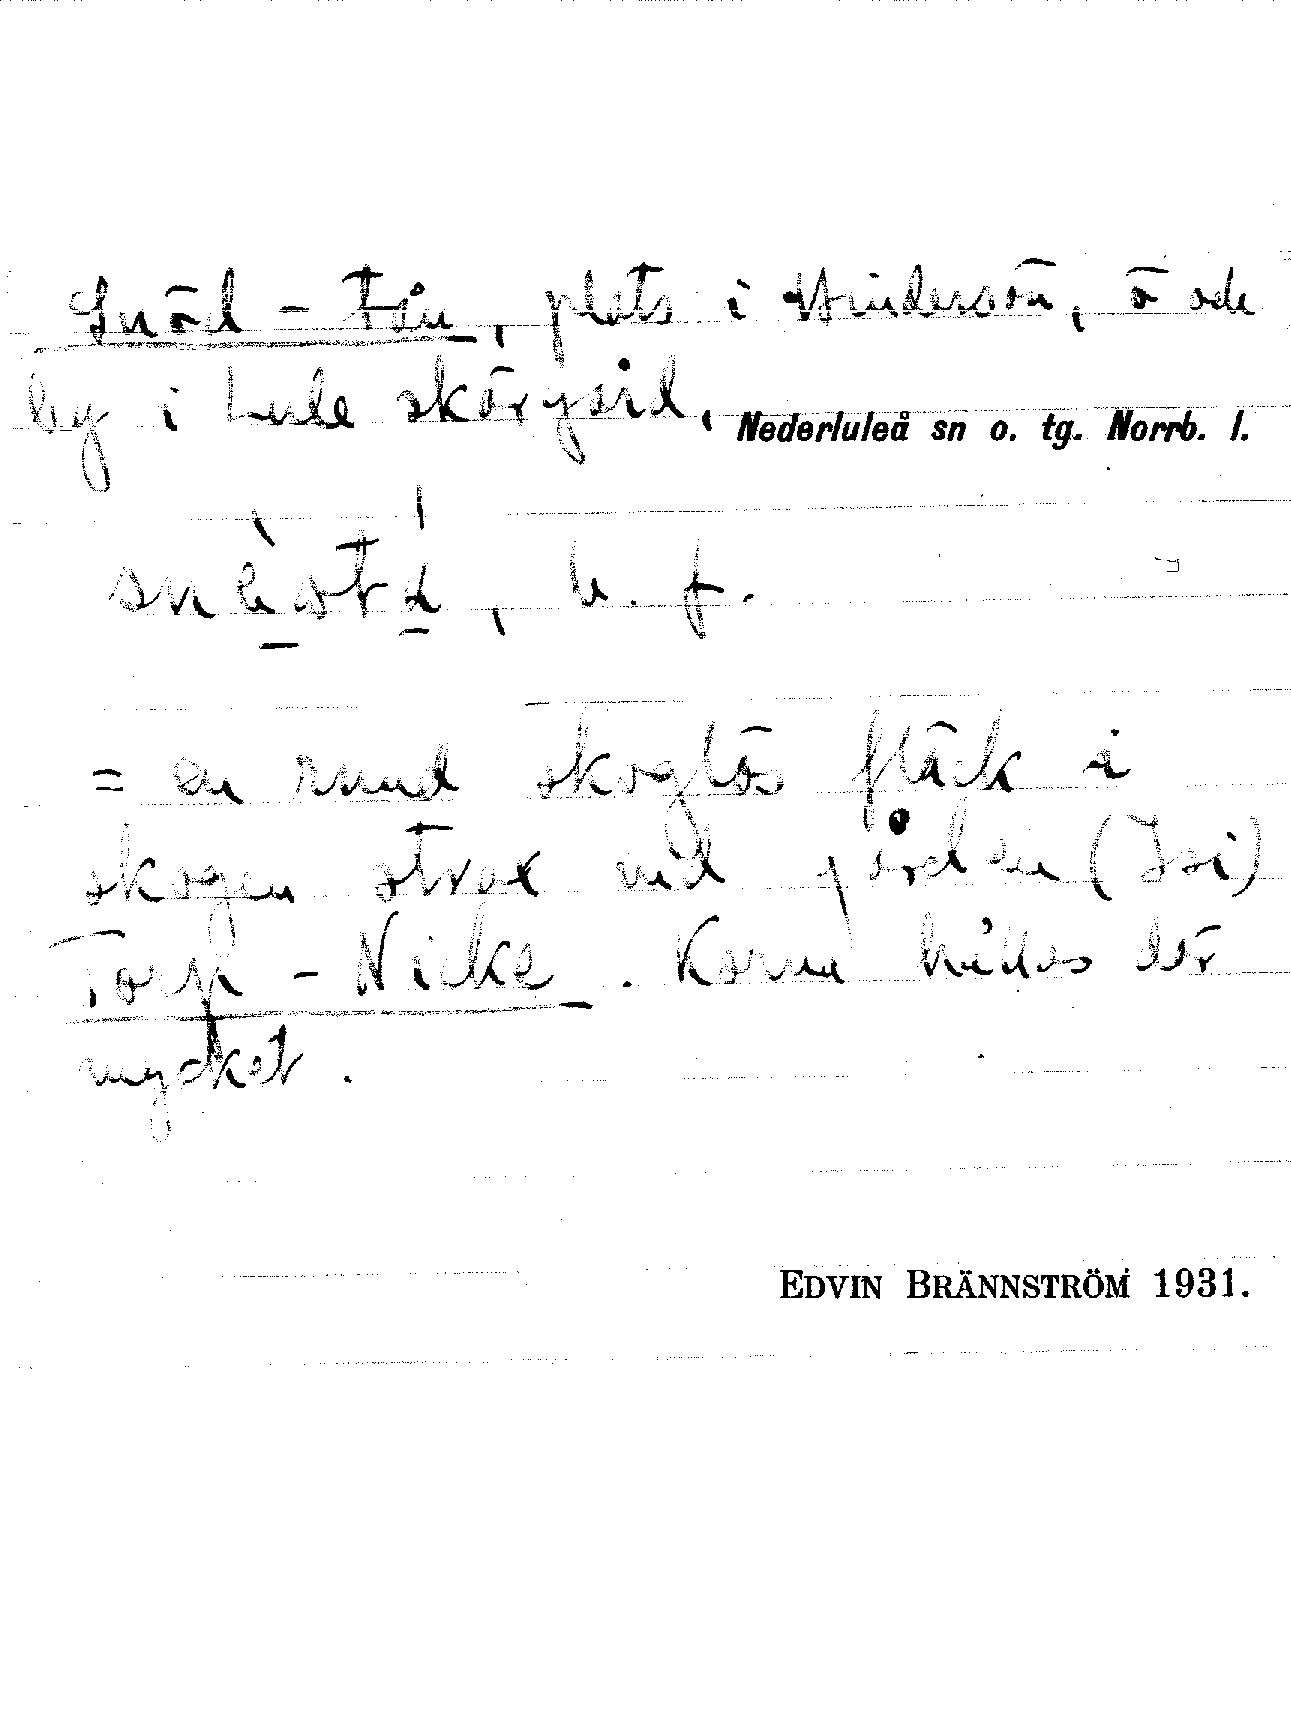 Snöd-tån, plats i Hindersön, ö och
by i Lule skärgård,
Nederluleå sn o. tg. Norrb. l.
n. f.
= en rund skoglös fläck i
skogen strax vid gården (Isi)
Torp-Nicke. Korna hålles där
mycket.
EDVIN BRÄNNSTRÖM 1931.